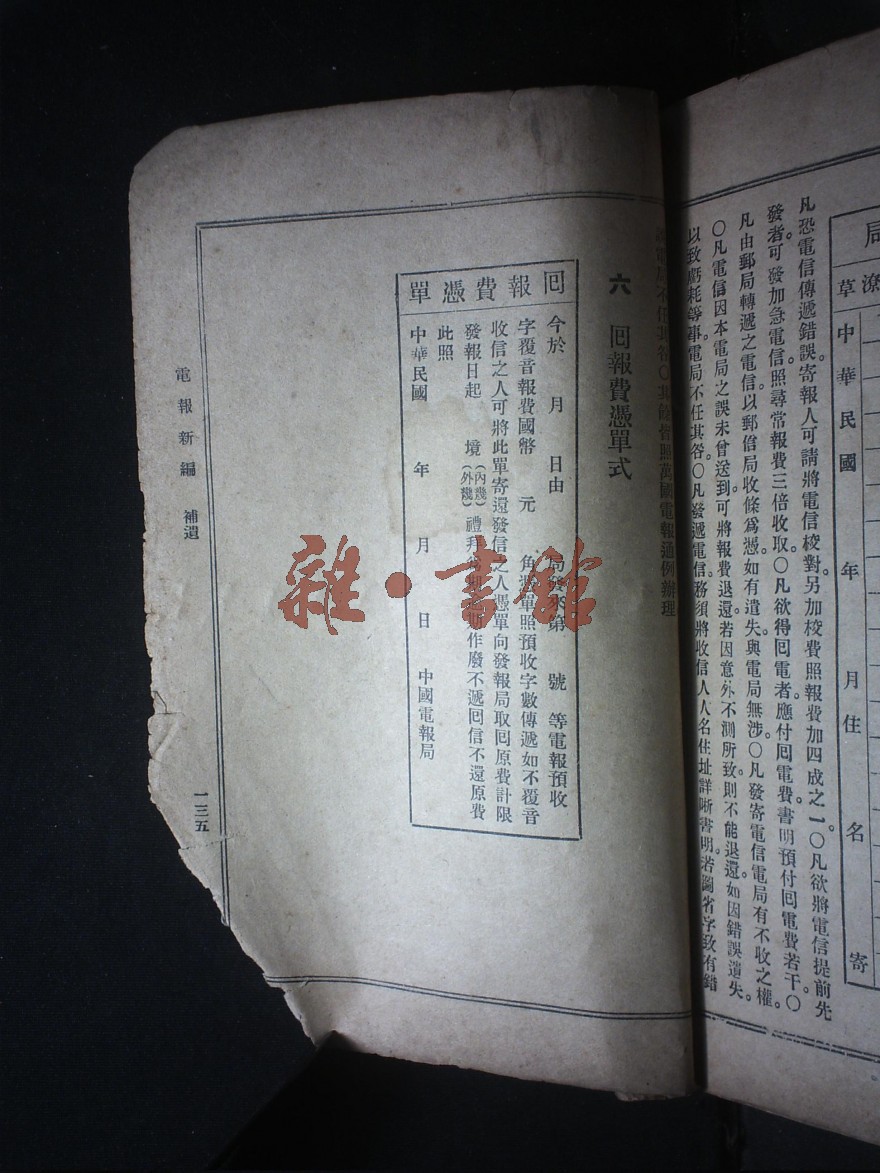 局
潦
草
中華民國 年 月住 名 寄
凡恐電信傳遞錯誤。寄報人可請將電信校對。另加校費照報費加四成之一。〇凡欲將電信提前先
發者。可發加急電信。照尋常報費三倍收取。〇凡欲得囘電者。應付囘電費。書明預付囘電費若干。〇
凡由郵局轉遞之電信。以郵信局收條爲憑。如有遺失。與電局無涉。〇凡發寄電信。電局有不收之權。
〇凡電信因本電局之誤未曾送到。可將報費退還。若因意外不測所致。則不能退還。如因錯誤遺失。
以致虧耗等事。電局不任其咎。〇凡發遞電信。務須將收信人大名住址詳晰書明。若圖省字致有錯
不任其咎〇其餘皆照萬國電報通例辦理
六 囘報費憑單式
囘報費憑單
今於 月 日由 局發來第 號 等電報預收
字覆音報費國幣 元 角將單照預收字數傳遞如不覆音
收信之人可將此單寄還發信之人憑單向發報局取囘原費計限
發報日起 境(內幾)(外幾)禮拜 期作廢不遞囘信不還原費
此照
中華民國 年 月 日 中國電報局
電報新編 補遺
一三五
雜·書館